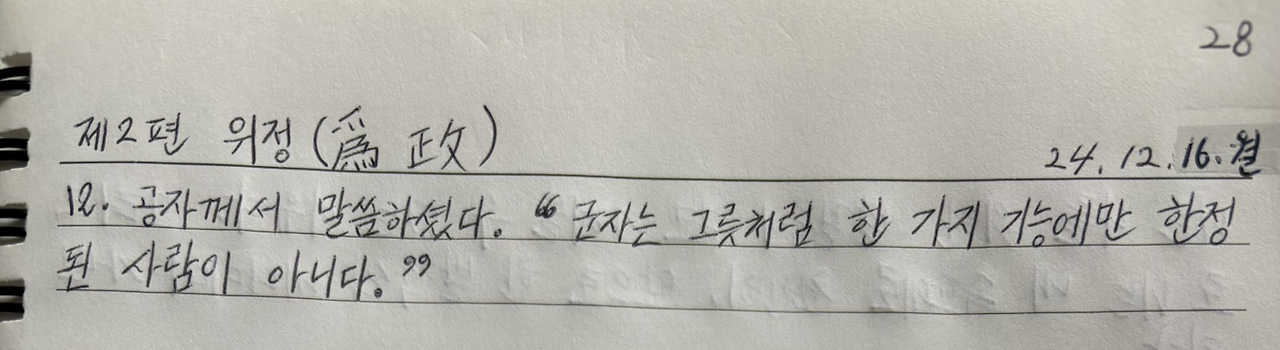 28
제2편 위정(爲政)
24.12.16.월
12. 공자께서 말씀하셨다. “군자는 그릇처럼 한 가지 기능에만 한정
된 사람이 아니다.”